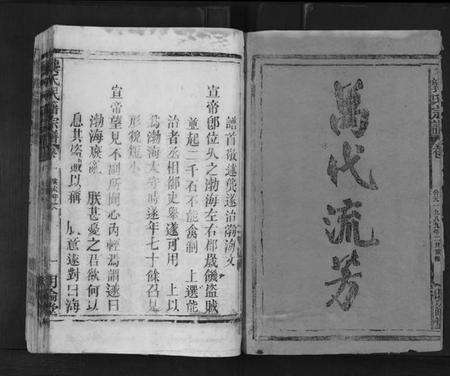 萬代流芳
譜首敬述龔遂治渤海文
宣帝卽位久之渤海左右郡歲饑盜賊
並起二千石不能禽制　上選能
治者丞相御史舉遂可用　上以
爲渤海太守時遂年七十餘召見
形貌短小
宣帝望見不副所聞心內輕焉謂遂曰
渤海廢亂　朕甚憂之君欲何以
息其盜賊以稱　朕意遂對曰海